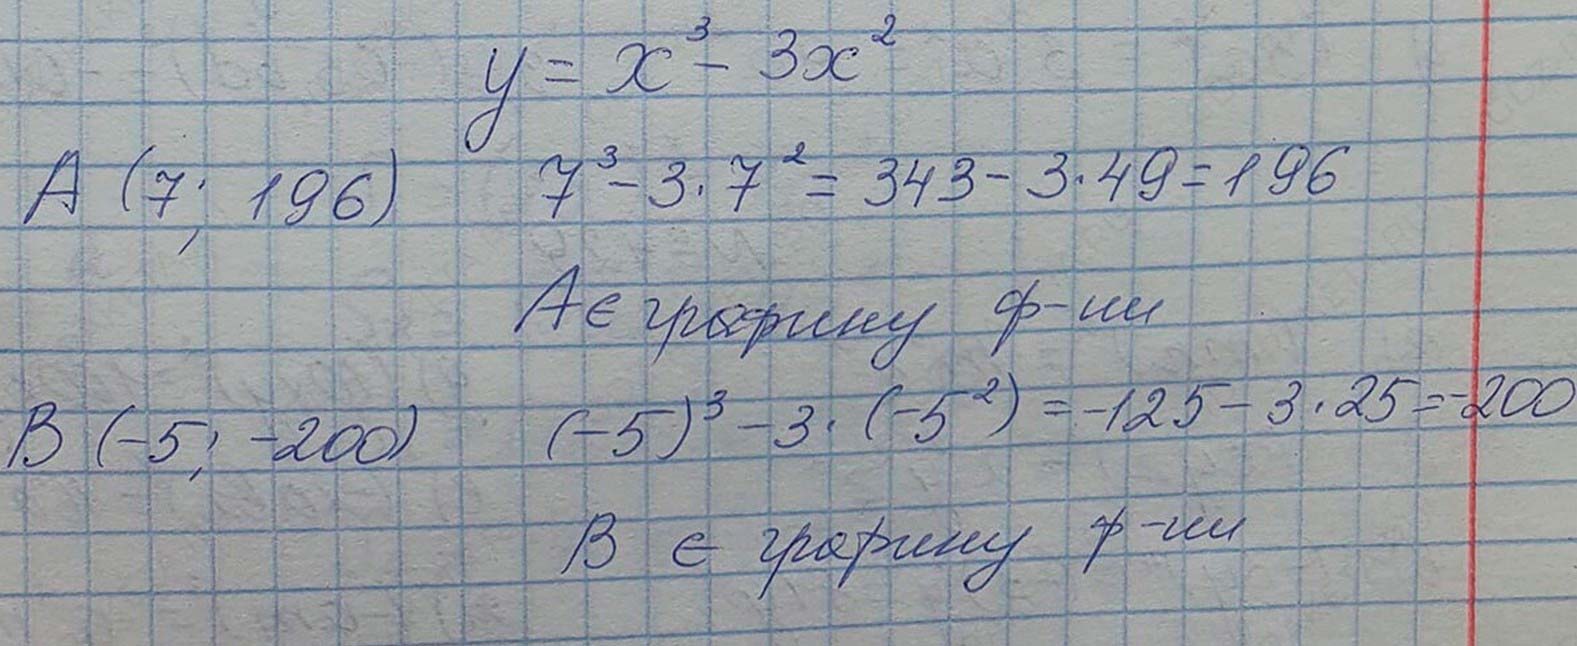 y = x³ - 3x²
A (7; 196) 7³ - 3·7² = 343 - 3·49 = 196
A ∈ графику ф-ии
B (-5; -200) (-5)³ - 3·(-5²) = -125 - 3·25 = -200
B ∈ графику ф-ии